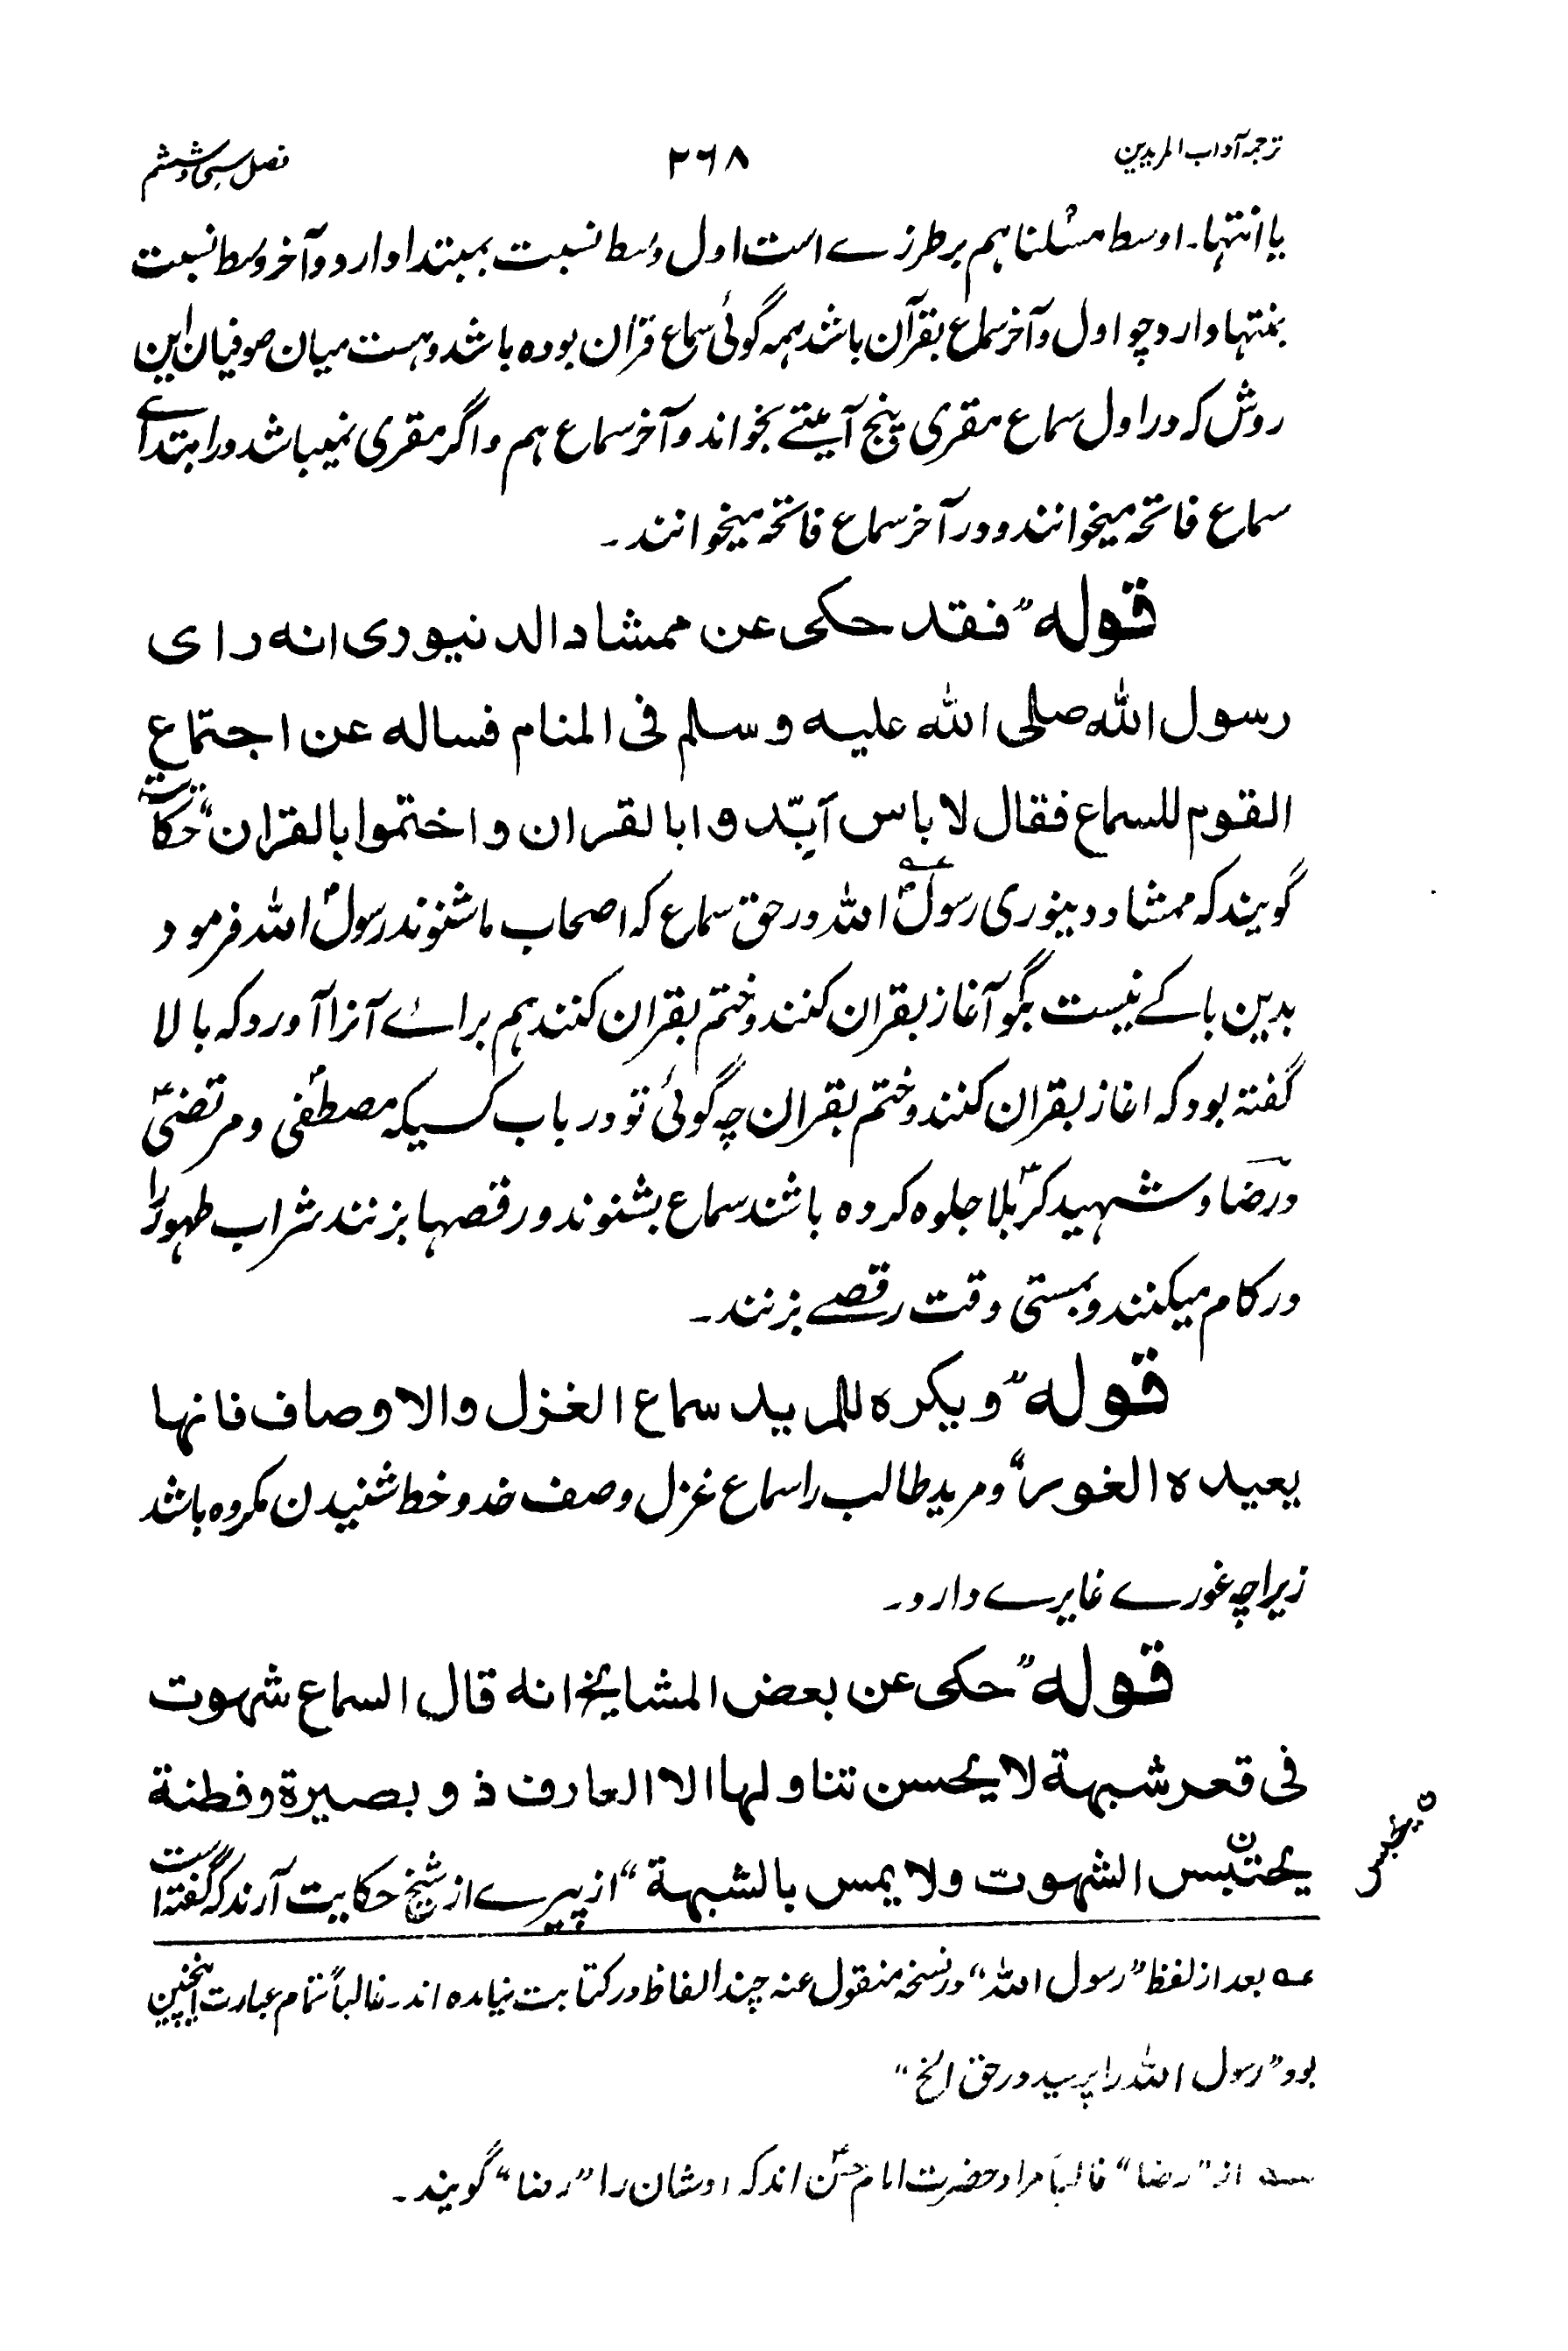 ترجمہ آداب المریدین ۲۶۸ فصل سی و ششم
یا انتہا۔ اوسط مثلنا ہم بر طرزے است اول وسط نسبت بمبتدا دارد و آخر وسط نسبت
بنتہا دارد چو اول و آخر سماع بقرآن باشد ہمہ گوئی سماع قران بودہ باشد و ہست میان صوفیان این
روش کہ در اول سماع مقری پنج آیتے بخواند و آخر سماع ہم و اگر مقری نمیباشد در ابتدائے
سماع فاتحہ میخوانند و در آخر سماع فاتحہ میخوانند۔
قولہ "فقد حکی عن ممشاد الدنیوری انہ رای
رسول اللہ صلی اللہ علیہ وسلم فی المنام فسالہ عن اجتماع
القوم للسماع فقال لا باس آبدوا بالقران واختموا بالقران" حکایت
گویند کہ ممشاد دینوری رسولؐ اللہ در حق سماع کہ اصحاب ما شنوند رسولؐ اللہ فرمود
بدین باکے نیست بگو آغاز بقران کنند و ختم بقران کنند ہم برائے آنرا آورد کہ بالا
گفتہ بود کہ اغاز بقران کنند و ختم بقران چہ گوئی تو در باب کسیکہ مصطفیؐ و مرتضیؑ
و رضا و شہید کربلا جلوہ کردہ باشند سماع بشنوند و رقصہا بزنند شراب طہور را
در کام میکنند و بمستی وقت رقصے بزنند۔
قولہ "ویکرہ للمرید سماع الغزل والاوصاف فانہا
یعیدہ الغور" و مرید طالب را سماع غزل وصف خد و خط شنیدن مکروہ باشد
زیراچہ غورے غایرے دارد۔
قولہ "حکی عن بعض المشایخ انہ قال السماع شہوت
فی قعر شبہة لا یحسن تناولہا الا العارف ذو بصیرة وفطنة
یحتبس الشہوت ولا یمس بالشبہة" از پیرے از شیخ حکایت آرند کہ گفتہ است
ن یحبس
عہ بعد از لفظ "رسول اللہ" در نسخہ منقول عنہ چند الفاظ در کتابت نیامدہ اند۔ غالباً تمام عبارت اینچنین
بود "رسول اللہ را پرسید در حق الخ"
سہ از "رضا" غالباً مراد حضرت امام حسنؑ اند کہ اوشان را "رضا" گویند۔